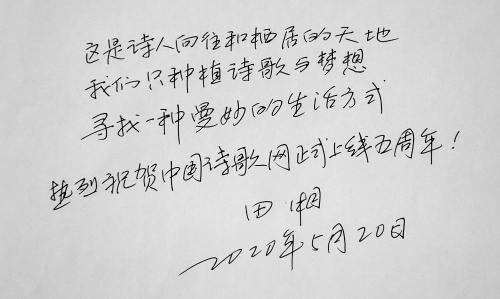 这是诗人向往和栖居的天地
我们只种植诗歌与梦想
寻找一种曼妙的生活方式
热烈祝贺中国诗歌网正式上线五周年！
田湘
2020年5月20日